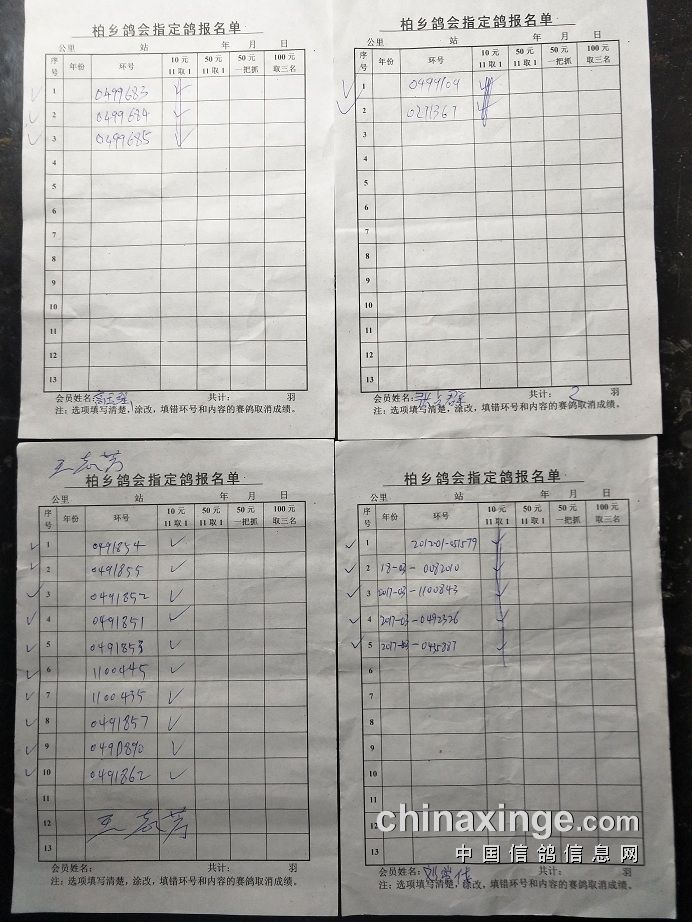 柏乡鸽会指定鸽报名单
公里 站 年 月 日
序号 年份 环号 10元 11取1 50元 11取1 50元 一把抓 100元 取三名
1 0499683 ✓
2 0499684 ✓
3 0499685 ✓
4
5
6
7
8
9
10
11
12
13
会员姓名: 共计: 羽
注:选项填写清楚,涂改,填错环号和内容的赛鸽取消成绩。
柏乡鸽会指定鸽报名单
公里 站 年 月 日
序号 年份 环号 10元 11取1 50元 11取1 50元 一把抓 100元 取三名
1 0499109 ✓
2 0271367 ✓
3
4
5
6
7
8
9
10
11
12
13
会员姓名: 共计: 2 羽
注:选项填写清楚,涂改,填错环号和内容的赛鸽取消成绩。
王志芳
柏乡鸽会指定鸽报名单
公里 站 年 月 日
序号 年份 环号 10元 11取1 50元 11取1 50元 一把抓 100元 取三名
1 0491854 ✓
2 0491855 ✓
3 0491852 ✓
4 0491851 ✓
5 0491853 ✓
6 1100445 ✓
7 1100435 ✓
8 0491857 ✓
9 ✓
10 0491862 ✓
11
12 王志芳
13
会员姓名: 共计: 羽
注:选项填写清楚,涂改,填错环号和内容的赛鸽取消成绩。
柏乡鸽会指定鸽报名单
公里 站 年 月 日
序号 年份 环号 10元 11取1 50元 11取1 50元 一把抓 100元 取三名
1 ✓
2 18-03-0082010 ✓
3 2017-03-1100843 ✓
4 2017-03-0492326 ✓
5 2017-03-0435887 ✓
6
7
8
9
10
11
12
13
会员姓名: 共计: 羽
注:选项填写清楚,涂改,填错环号和内容的赛鸽取消成绩。
chinaxinge.com
中国信鸽信息网